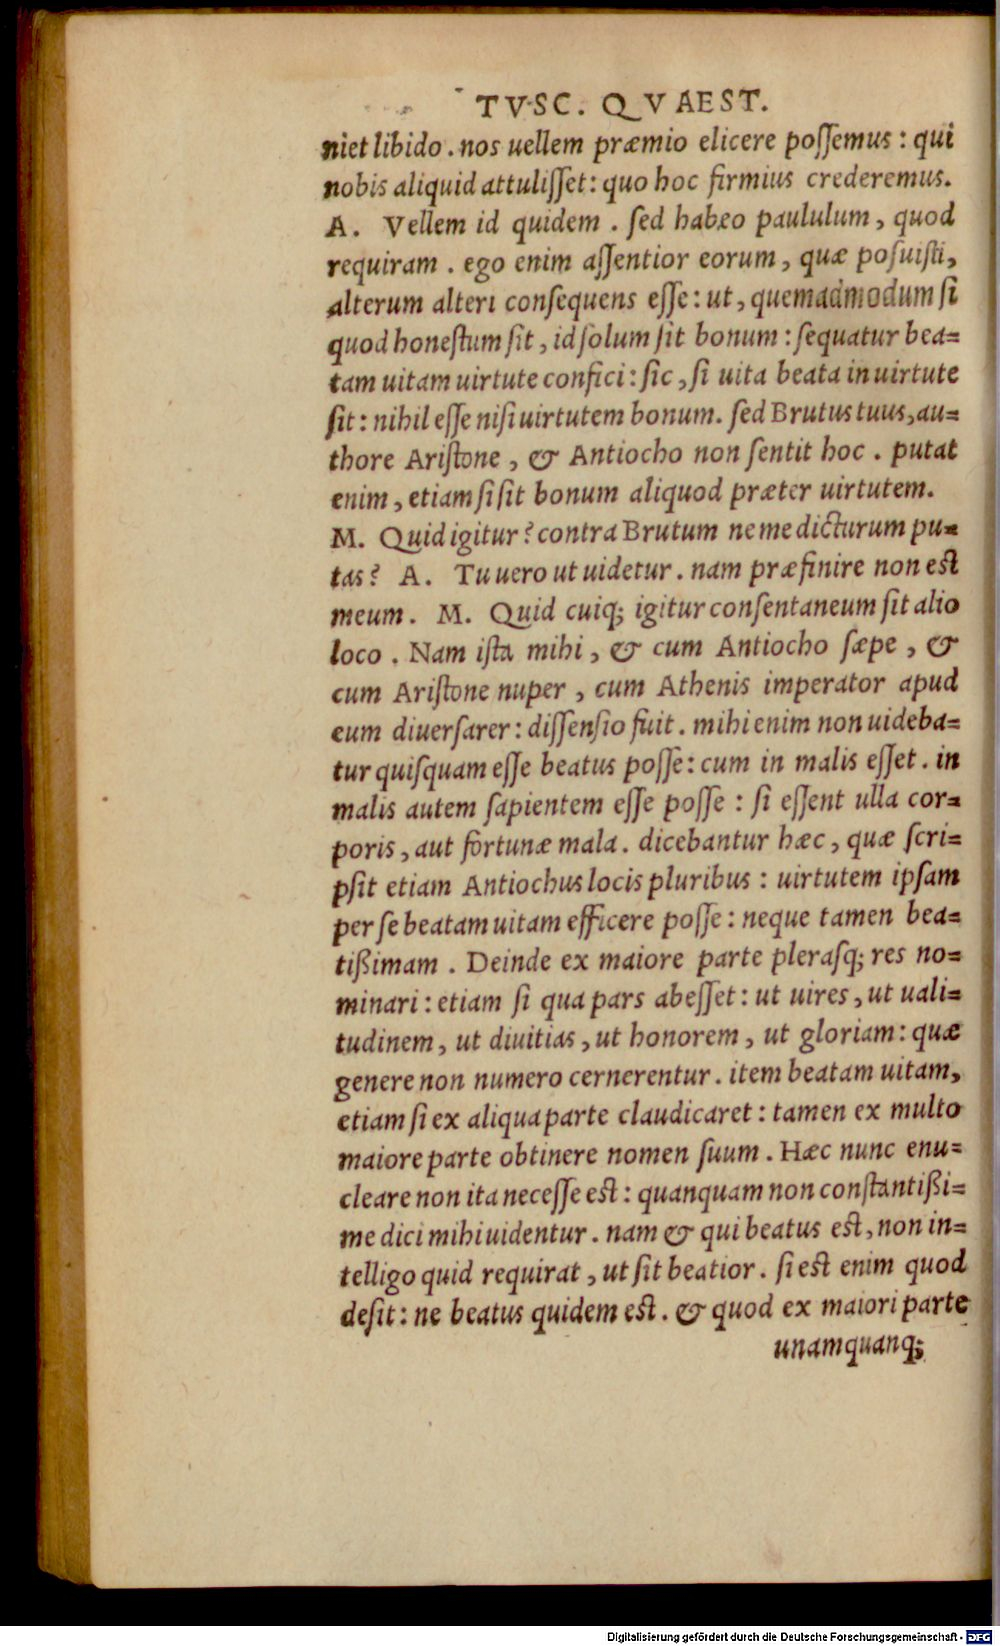 TVSC. QVAEST.
niet libido. nos uellem præmio elicere poſſemus: qui
nobis aliquid attuliſſet: quo hoc firmius crederemus.
A. Vellem id quidem. ſed habeo paululum, quod
requiram. ego enim aſſentior eorum, quæ poſuiſti,
alterum alteri conſequens eſſe: ut, quemadmodum ſi
quod honeſtum ſit, id ſolum ſit bonum: ſequatur bea=
tam uitam uirtute confici: ſic, ſi uita beata in uirtute
ſit: nihil eſſe niſi uirtutem bonum. ſed Brutus tuus, au=
thore Ariſtone, & Antiocho non ſentit hoc. putat
enim, etiam ſi ſit bonum aliquod præter uirtutem.
M. Quid igitur? contra Brutum ne me dicturum pu=
tas? A. Tu uero ut uidetur. nam præfinire non est
meum. M. Quid cuiq; igitur conſentaneum ſit alio
loco. Nam iſta mihi, & cum Antiocho ſæpe, &
cum Ariſtone nuper, cum Athenis imperator apud
eum diuerſarer: diſſenſio fuit. mihi enim non uideba=
tur quiſquam eſſe beatus poſſe: cum in malis eſſet. in
malis autem ſapientem eſſe poſſe: ſi eſſent ulla cor=
poris, aut fortunæ mala. dicebantur hæc, quæ ſcri=
pſit etiam Antiochus locis pluribus: uirtutem ipſam
per ſe beatam uitam efficere poſſe: neque tamen bea=
tißimam. Deinde ex maiore parte pleraſq; res no=
minari: etiam ſi qua pars abeſſet: ut uires, ut uali=
tudinem, ut diuitias, ut honorem, ut gloriam: quæ
genere non numero cernerentur. item beatam uitam,
etiam ſi ex aliqua parte claudicaret: tamen ex multo
maiore parte obtinere nomen ſuum. Hæc nunc enu=
cleare non ita neceſſe est: quanquam non conſtantißi=
me dici mihi uidentur. nam & qui beatus est, non in=
telligo quid requirat, ut ſit beatior. ſi est enim quod
deſit: ne beatus quidem est. & quod ex maiori parte
unamquanq;
Digitalisierung gefördert durch die Deutsche Forschungsgemeinschaft - DFG